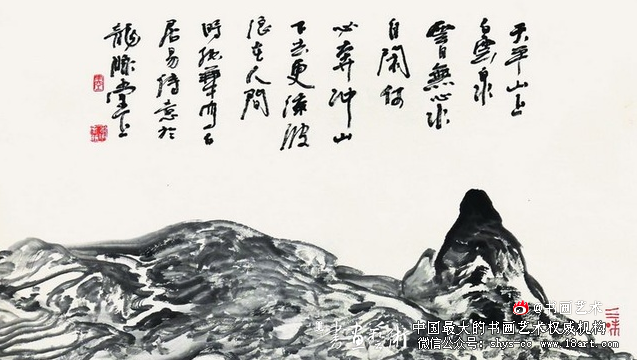 天平山上
白雲泉
雲自無心水
自閑何
必奔沖山
下去更添波
浪在人間
居易詩意於
龍脉堂上
@书画艺术
中国最大的书画艺术权威机构
微信公众号：shys-cc www.18art.com